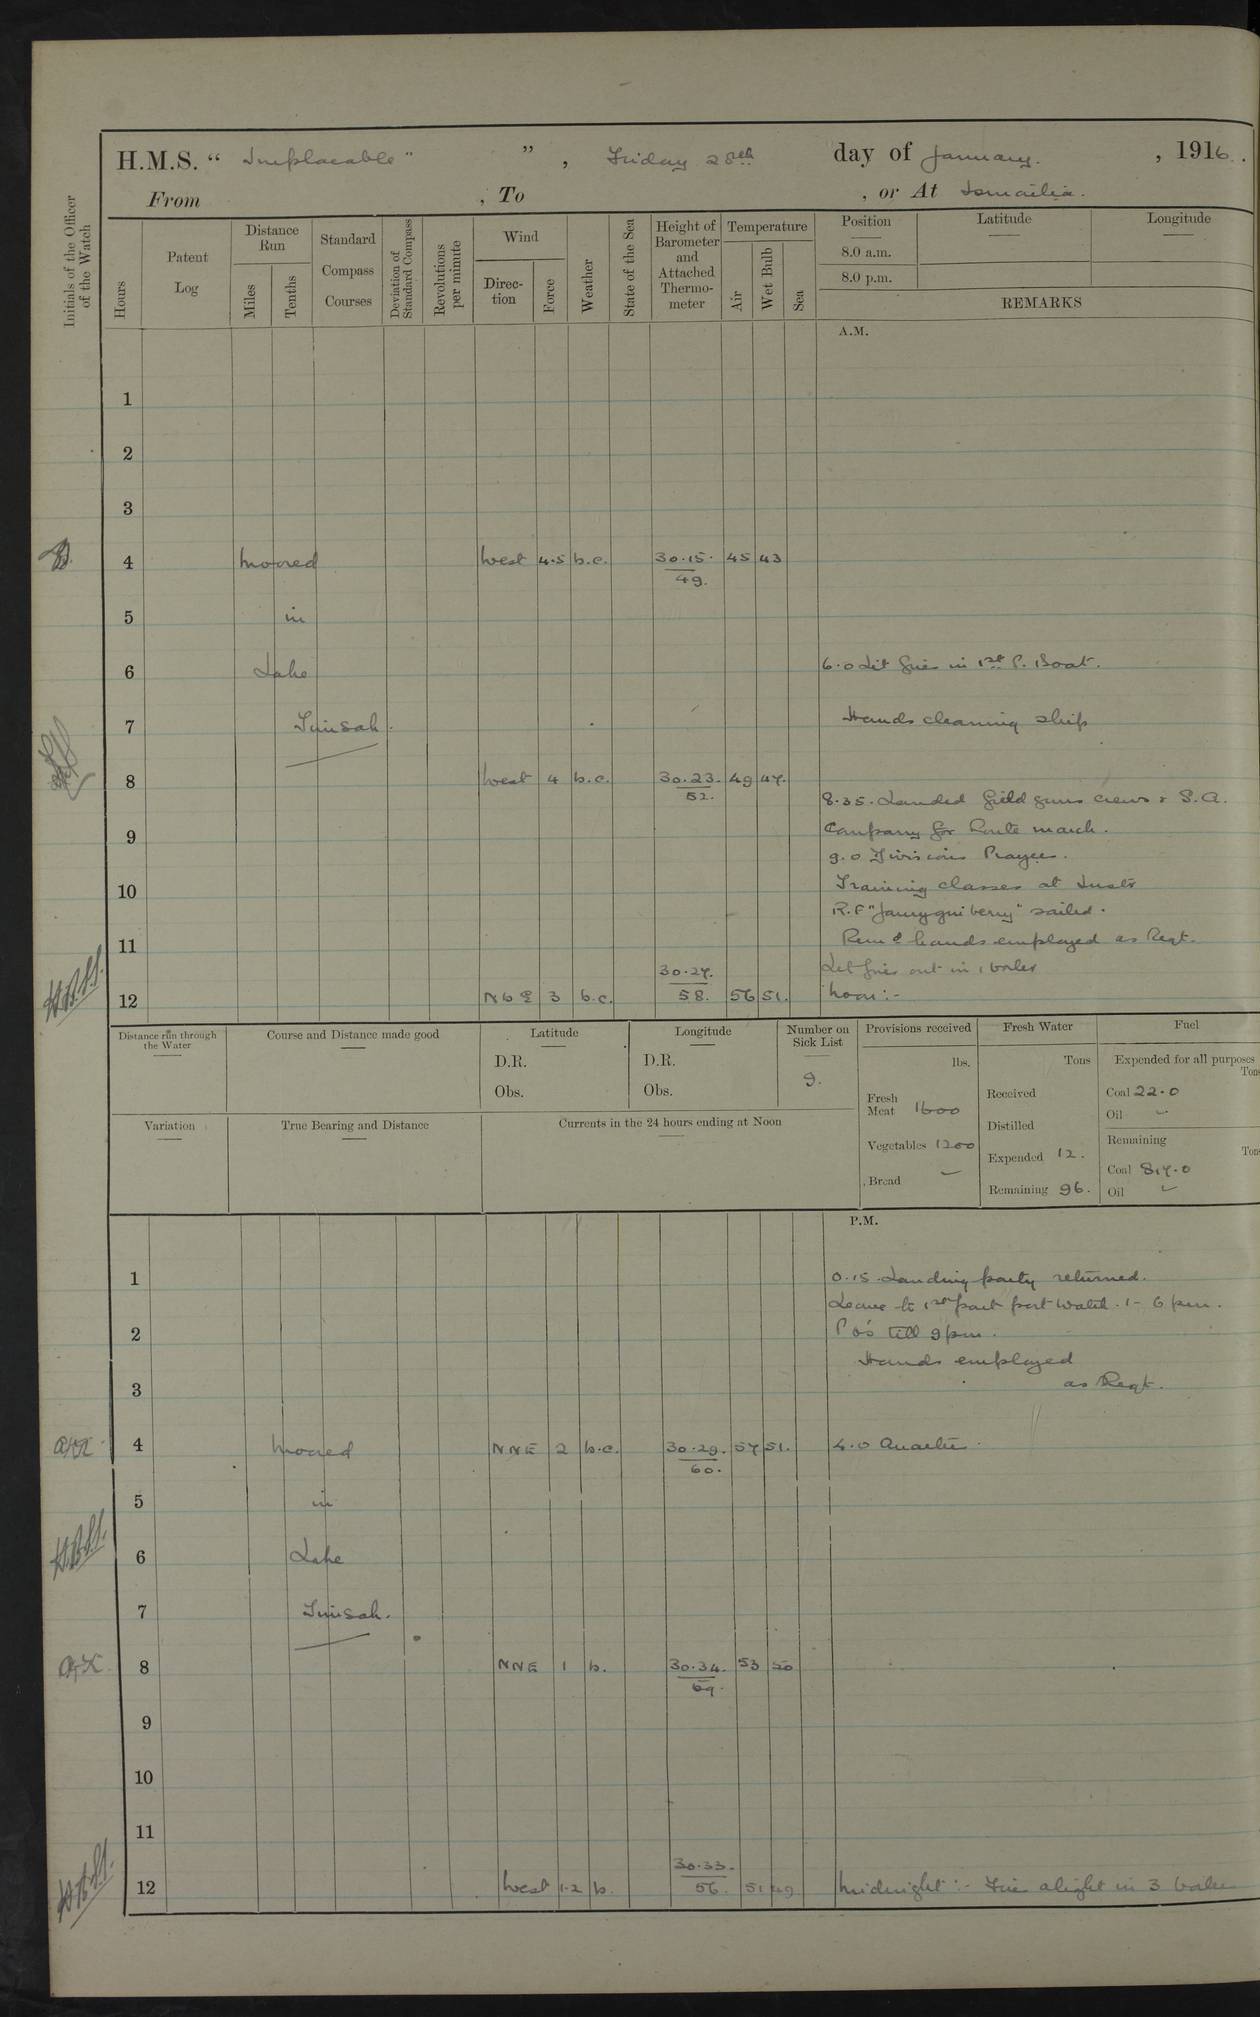 H.M.S. " Implacable " " , Friday 28th day of January. , 1916.
From , To , or At Ismailia.
Initials of the Officer of the Watch
Hours
Patent Log
Distance Run
Miles
Tenths
Standard Compass Courses
Deviation of Standard Compass
Revolutions per minute
Wind
Direction
Force
Weather
State of the Sea
Height of Barometer and Attached Thermometer
Temperature
Air
Wet Bulb
Sea
Position
8.0 a.m.
8.0 p.m.
Latitude
Longitude
REMARKS
A.M.
1
2
3
4 Moored West 4.5 b.c. 30.15. 45 43
49.
5 in
6 Lake 6.0 Lit fires in 1st P. Boat.
7 Timsah. Hands cleaning ship
8 West 4 b.c. 30.23. 49 47.
52.
8.35. Landed field guns crews & S.A.
9 Company for Route march.
9.0 Divisions Prayers.
10 Training classes at Instr
R.F "Jaureguiberry" sailed.
11 Remdr hands employed as Reqt.
30.27. Let fires out in 1 boiler
12 N b E 3 b.c. 58. 56 51. Noon:-
Distance run through the Water
Course and Distance made good
Latitude
D.R.
Obs.
Longitude
D.R.
Obs.
Number on Sick List
9.
Provisions received
lbs.
Fresh Meat 1600
Vegetables 1200
Bread –
Fresh Water
Tons
Received
Distilled
Expended 12.
Remaining 96.
Fuel
Expended for all purposes
Tons
Coal 22.0
Oil –
Remaining
Tons
Coal 817.0
Oil –
Variation
True Bearing and Distance
Currents in the 24 hours ending at Noon
P.M.
1 0.15. Landing party returned.
Leave to 1st part port watch. 1 - 6 pm.
2 P.O's till 9 pm.
Hands employed
3 as Reqt.
4 Moored NNE 2 b.c. 30.29. 57 51. 4.0 Quarters
60.
5 in
6 Lake
7 Timsah.
8 NNE 1 b. 30.34. 53 50
9
10
11
30.33.
12 West 1-2 b. 56. 51 49 Midnight:- Fires alight in 3 boilers